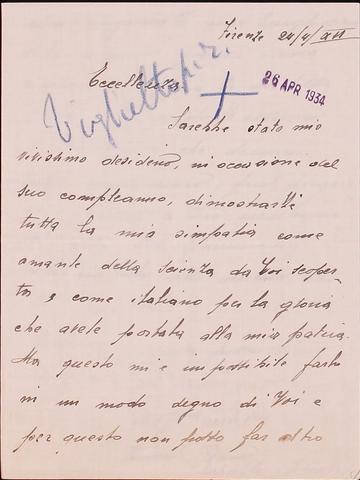 Firenze 24/4/XII
26 APR 1934
Eccellenza
Sarebbe stato mio
vivissimo desiderio, in occasione del
suo compleanno, dimostrarle
tutta la mia simpatia come
amante della scienza da Voi scoper-
ta e come italiano per la gloria
che avete portata alla mia patria.
Ma questo mi è impossibile farlo
in un modo degno di Voi e
per questo non posso far altro